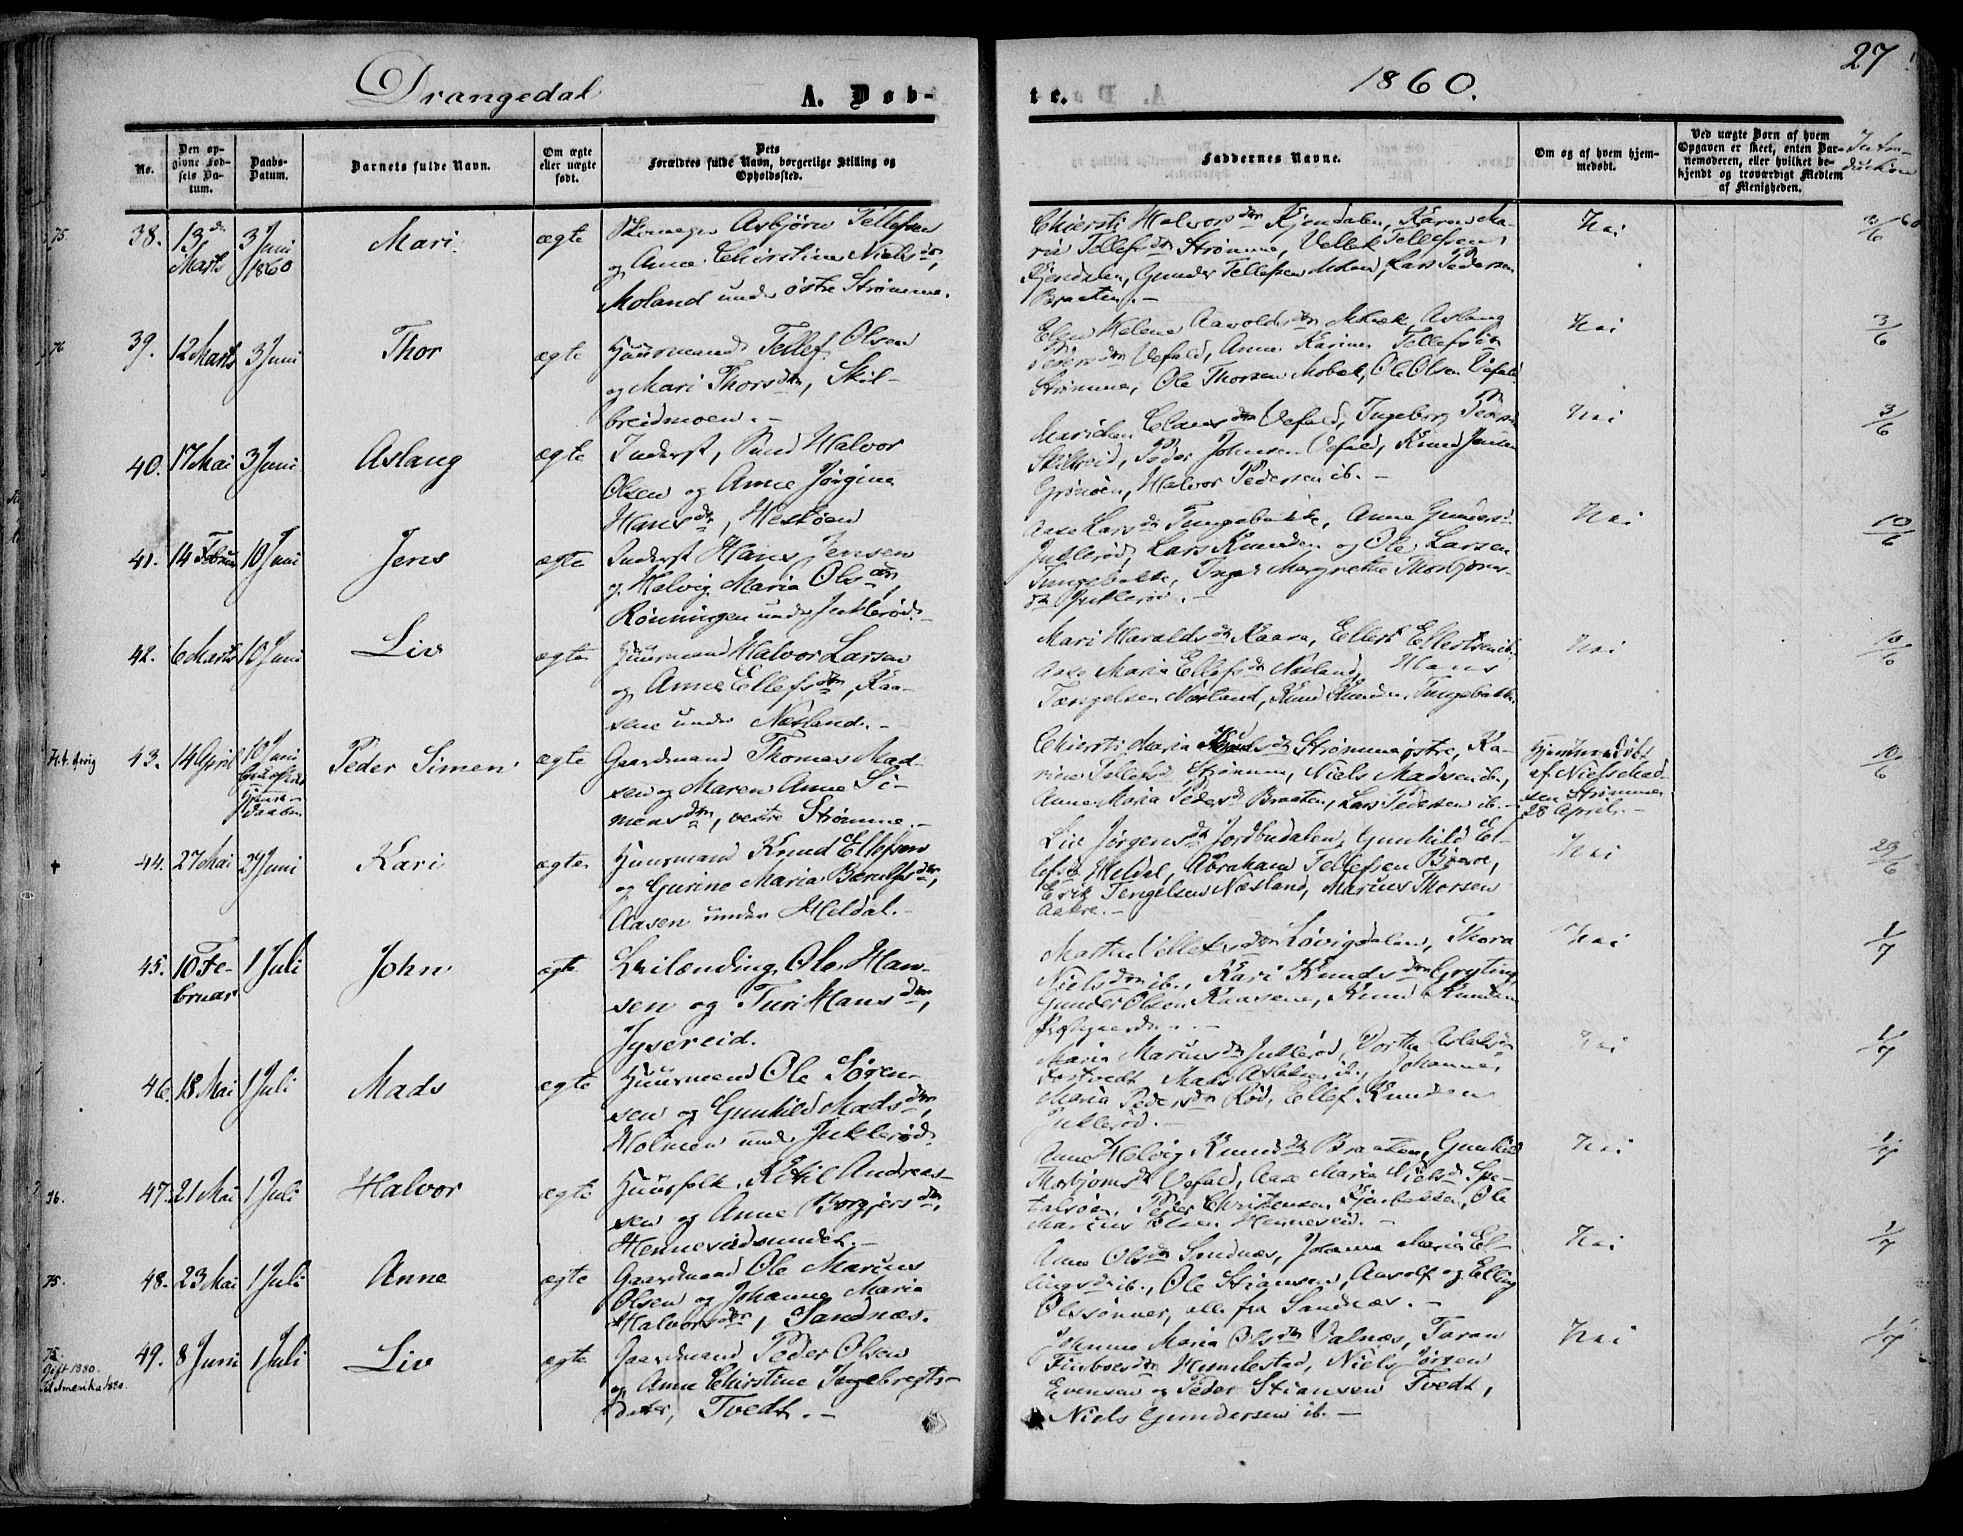 27
Drangedal
A. Døb-
te.
1860.
No.
Den op-
givne Fød-
sels Da-
tum.
Daabs-
Datum.
Barnets fulde Navn.
Om ægte
eller uægte
født.
Dets
Forældres fulde Navn, borgerlige Stilling og
Opholdssted.
Faddernes Navne.
Om og af hvem hjem-
medøbt.
Ved uægte Børn af hvem
Opgaven er skeet, enten Bar-
nemoderen, eller hvilket be-
kjendt og troværdigt Medlem
af Menigheden.
Intro-
duction
75
38. 13de Marts
3 Juni 1860
Mari
ægte
Asbjørn Tellefsen
og Anne Chirstine Nielsdtr,
Moland under østre Strømme.
Chiersti Halvorsdtr Kjendalen, Karen Ma-
rie Tellefsdtr Strømme, Vellek Tellefsen
Kjendalen, Gunder Tellefsen Moland, Lars Pedersen
Braaten.-
Nei
3/6 60
76
39. 12 Marts
3 Juni
Thor
ægte
Huusmand Tellef Olsen
og Mari Thorsdtr, Skil-
breidmoen.-
Helene Aavoldsdtr Mobæk, Aslaug
Pedersdtr Vefald, Anne Karine Tellefsdtr
Strømme, Ole Thorsen Mobæk, Ole Olsen Vefald
Nei
3/6
40. 17 Mai
3 Juni
Aslaug
ægte
Inderst, Halvor
Olsen og Anne Jørgine
Hansdtr, Hestøen
Marichen Clausdtr Vefald, Ingeborg Pedersdtr
Skilbreid, Peder Johnsen Vefald, Knud Jensen
Grønøen, Halvor Pedersen ib.-
Nei
3/6
41. 14 Februar
10 Juni
Jens
ægte
Inderst Hans Jensen
og Helvig Maria Olsdtr
Rønningen under Juklerød.-
Aase Larsdtr Tungebakke, Anne Gundersdtr
Juklerød, Lars Knudsen og Ole Larsen
Tungebakke, Inger Margrethe Thorbjørns-
dtr Juklerød.-
Nei
10/6
42. 6 Marts
10 Juni
Liv
ægte
Huusmand Halvor Larsen
og Anne Ellefsdtr, Kaa-
sene under Næsland.-
Mari Haraldsdtr Kaasa, Ellert Ellertsen ib.
Aase Maria Ellefsdtr Næsland, Hans
Tengelsen Næsland, Knud Knudsen Tungebakke.
Nei
10/6
43. 14 April
10 Juni
Hjemme-
daaben
Peder Simen
ægte
Gaardmand Thomas Mad-
sen og Maren Anne Si-
mensdtr, vestre Strømme.-
Chiersti Maria Strømme østre, Ka-
rine Tellefsd Strømme, Niels Madsen ib.,
Anne Maria Pedersd Braaten, Lars Pedersen ib.-
Hjemmedøbt
af Niels Mad-
sen Strømme
28 April.-
10/6
+
44. 27 Mai
24 Juni
Kari
ægte
Huusmand Knud Ellefsen
og Gurine Maria Bærulfsdtr,
Aasen under Heldal.-
Liv Jørgensdtr Jordbudalen, Gunhild El-
lefsd Heldal, Abraham Tellefsen Braae,
Erik Tengelsen Næsland, Marius Thorsen
Aakre.-
Nei
45. 10 Fe-
bruar
1 Juli
John
ægte
Ole Han-
sen og Turi Hansdtr,
Jysereid.
Løvigdalen, Thora
Nielsdtr ib., Kari Knudsdtr Gryting,
Gunder Olsen Kaasene, Knud Knudsen
Nei
1/7
46. 18 Mai
1 Juli
Mads
ægte
Huusmand Ole Søren-
sen og Gunhild Madsdtr,
Holmen under Juklerød
Maria Mariusdtr Juklerød, Dorthe Aslaksdtr
Mads Aslaksen ib., Johanne
Maria Pedersdtr Rød, Ellef Knudsen
Juklerød.-
Nei
1/7
76.
47. 21 Mai
1 Juli
Halvor
ægte
Huusfolk, Ketil Andreas-
sen og Anne Borgjersdtr,
Henneseidsundet.-
Anne Helvig Knudsdtr Braaten, Gunhild
Thorbjørnsdtr Vefald, Aase Maria Nielsd.
Peder Christensen Ole
Marius Olsen Henneseid.-
Nei
1/7
75.
48. 23 Mai
1 Juli
Anne
ægte
Gaardmand Ole Marius
Olsen og Johanne Maria
Halvorsdtr, Sandnæs.
Anne Olsdtr Sandnæs, Johanne Maria El-
lingsdtr ib., Ole Stiansen, Aavolf og Elling
Olssønner, alle fra Sandnæs.-
Nei
1/7
75.
Gift 1880.
Til Amerika 1880.
49. 8 Juni
1 Juli
Liv
ægte
Gaardmand Peder Olsen
og Anne Chirstine Ingebregts-
datter, Tvedt.-
Johanne Maria Olsdtr Valnæs, Taran
Finboesdtr Humlestad, Niels Jørgen
Evensen og Peder Stiansen Tvedt,
Niels Gundersen ib.-
Nei
1/7